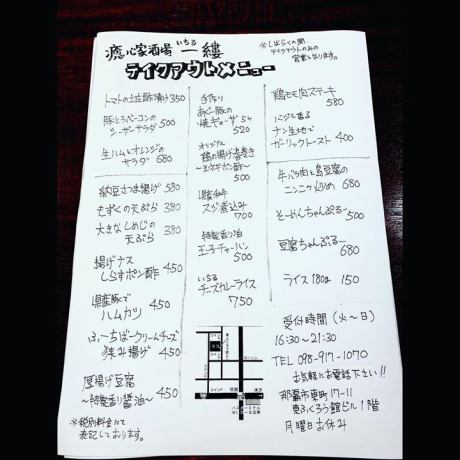 癒心家酒場 いちる 一縷
テイクアウトメニュー
※しばらくの間、
テイクアウトのみの
営業となります。
トマトの土佐酢漬け 350
豚とろベーコンの
シーザーサラダ 500
生ハムとオレンジの
サラダ 680
納豆さつま揚げ 580
もずくの天ぷら 380
大きなしめじの
天ぷら 380
揚げナス
しらすポン酢 450
県産豚で
ハムカツ 450
ふーちばークリームチーズ
挟み揚げ 450
厚揚げ豆腐
～特製香り醤油～ 450
※税別料金にて
表記しております。
手作り
あぐー豚の
焼ギョーザ 5ヶ
520
オリジナル
鶏の揚げ春巻き
～玉ネギポン酢～
500
県産和牛
スジ煮込み
700
特製香り油
玉子チャーハン
500
いちる
チーズカレーライス
750
鶏モモ肉ステーキ
580
バジル香る
ナン生地で
ガーリックトースト 400
牛バラ肉と島豆腐の
ニンニク炒め 680
そーめんちゃんぷるー
500
豆腐ちゃんぷるー
680
ライス 180g 150
ローソン
受付時間 (火～日)
16:30～21:30
TEL 098-917-1070
お気軽にお電話下さい!!
那覇市東町17-11
東ふくろう館ビル1階
月曜日お休み